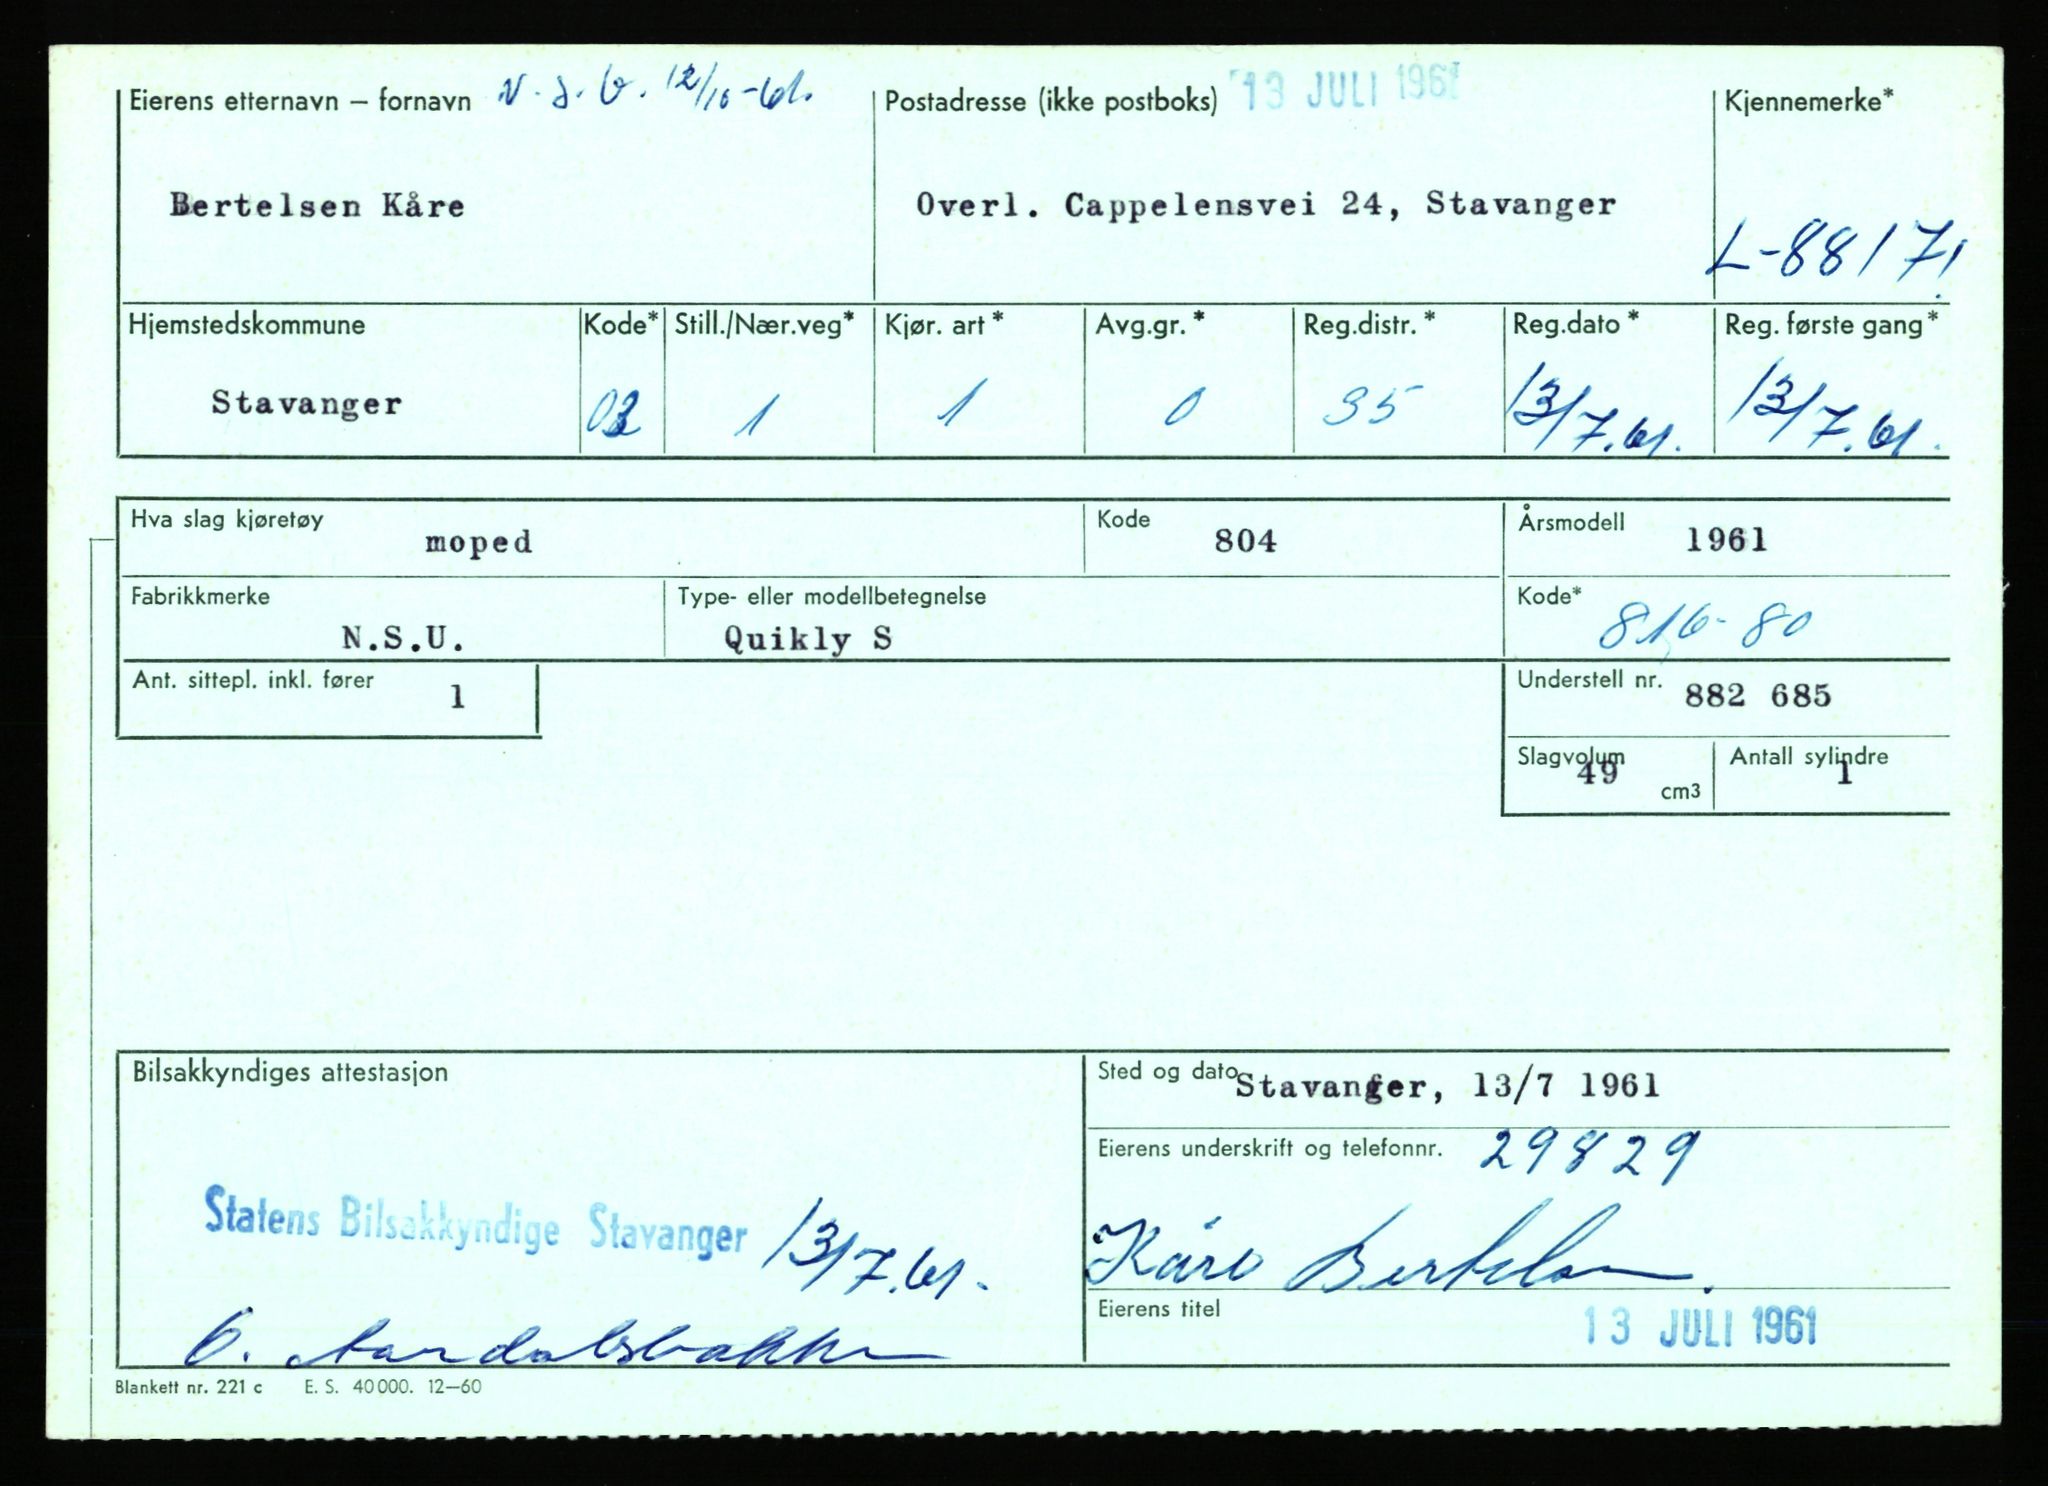 Eierens etternavn – fornavn 12/10-61.
Postadresse (ikke postboks) 13 JULI 1961
Kjennemerke*
Bertelsen Kåre
Overl. Cappelensvei 24, Stavanger
L-88171
Hjemstedskommune
Kode*
Still./Nær.veg*
Kjør. art *
Avg.gr. *
Reg.distr. *
Reg.dato *
Reg. første gang *
Stavanger
1
1
0
35
13/7.61.
13/7.61.
Hva slag kjøretøy
moped
Kode
804
Årsmodell
1961
Fabrikkmerke
N.S.U.
Type- eller modellbetegnelse
Quikly S
Kode*
816-80
Ant. sittepl. inkl. fører
1
Understell nr.
882 685
Slagvolum
49
cm3
Antall sylindre
1
Bilsakkyndiges attestasjon
Statens Bilsakkyndige Stavanger 13/7.61.
Sted og dato
Stavanger, 13/7 1961
Eierens underskrift og telefonnr. 29829
Kåre Bertelsen.
Eierens titel
13 JULI 1961
Blankett nr. 221 c E. S. 40 000. 12–60